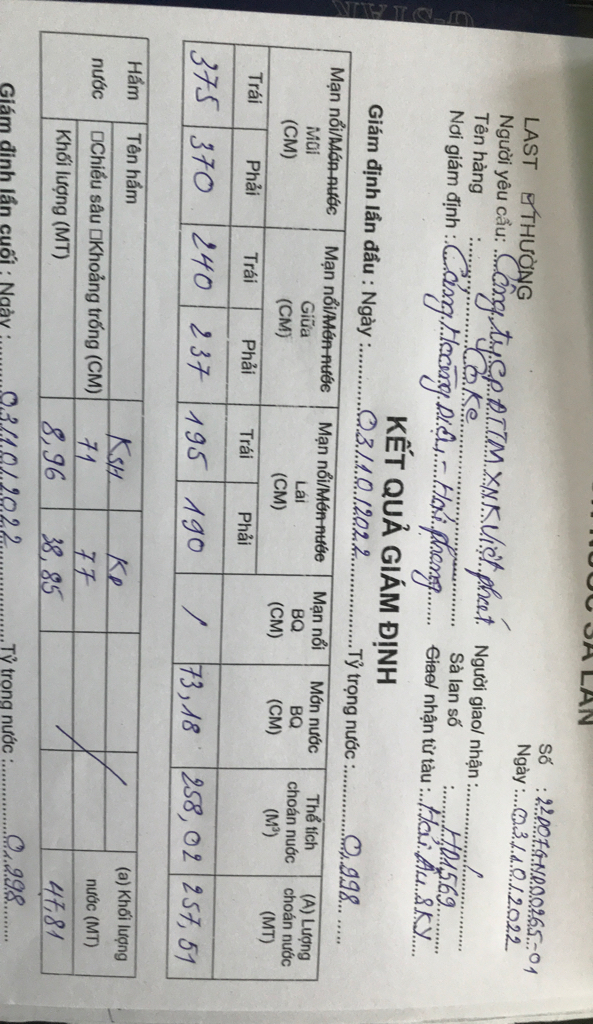 NƯỚC SÀ LAN
Số : 22D07GN00265-01
Ngày : 03/10/2022
LAST ☑ THƯỜNG
Người yêu cầu: Công ty CP ĐTTM XNK Việt phát Người giao/ nhận : /
Tên hàng : Cốc ke Sà lan số : HD1569
Nơi giám định : Cảng Hoàng Diệu - Hải phòng Giao/ nhận từ tàu : Hải Âu SKY
KẾT QUẢ GIÁM ĐỊNH
Giám định lần đầu : Ngày : 03/10/2022 Tỷ trọng nước : 0.998
Mạn nổi/Món nước Mũi (CM) Mạn nổi/Món nước Giữa (CM) Mạn nổi/Món nước Lái (CM) Mạn nổi BQ (CM) Món nước BQ (CM) Thể tích choán nước (M³) (A) Lượng choán nước (MT)
Trái Phải Trái Phải Trái Phải
375 370 240 237 195 190 / 73,18 258,02 257,51
Hầm nước Tên hầm KSH KP (a) Khối lượng nước (MT)
☐Chiều sâu ☐Khoảng trống (CM) 71 77
Khối lượng (MT) 8,96 38,85 47,81
Giám định lần cuối : Ngày : 03/10/2022 Tỷ trọng nước : 0.998